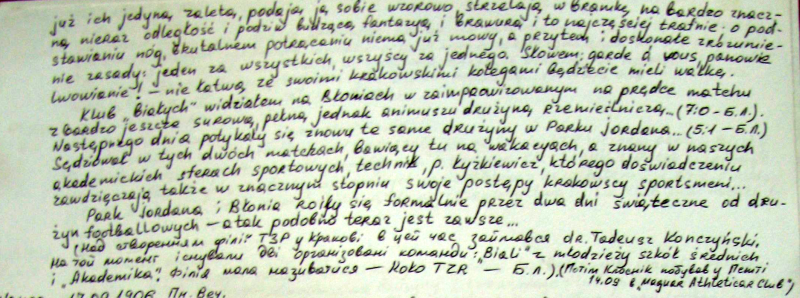 już ich jedyną zaletą, podają ją sobie wzorowo, strzelają w bramkę na bardzo znacz-
ną nieraz odległość i podziw budzącą fantazyą i brawurą i to najczęściej trafnie: o pod-
stawianiu nóg, brutalnem potrącaniu niema już mowy, a przytem: doskonałe zrozumie-
nie zasady: jeden za wszystkich, wszyscy za jednego. Słowem: garde à vous, panowie
lwowianie! — nie łatwą ze swoimi krakowskimi kolegami będziecie mieli walkę.
Klub „Białych" widziałem na Błoniach w zaimprowizowanym na prędce matchu
z bardzo jeszcze surową, pełną jednak animuszu drużyną rzemieślniczą... (7:0 – Б.Л.).
Następnego dnia potykały się znowu te same drużyny w Parku Jordana... (5:1 – Б.Л.)
Sędziował w tych dwóch matchach, bawiący tu na wakacyach, a znany w naszych
akademickich sferach sportowych, technik, p. Kyżkiewicz, którego doświadczeniu
zawdzięczają także w znacznym stopniu swoje postępy krakowscy sportsmeni...
Park Jordana i Błonia roiły się formalnie przez dwa dni świąteczne od dru-
żyn footballowych — a tak podobno teraz jest zawsze...
(Над створенням філії ТЗР у Кракові в цей час займався dr. Tadeusz Konczyński.
На той момент існували дві організовані команди: „Biali" z młodzieży szkół średnich
i „Akademika". Філія мала називатися — Koło TZR — Б.Л.). (Потім Клосник побував у Пешті
14.09 в „Magyar Athletical Club");
17.09.1906. Пн. Веч.